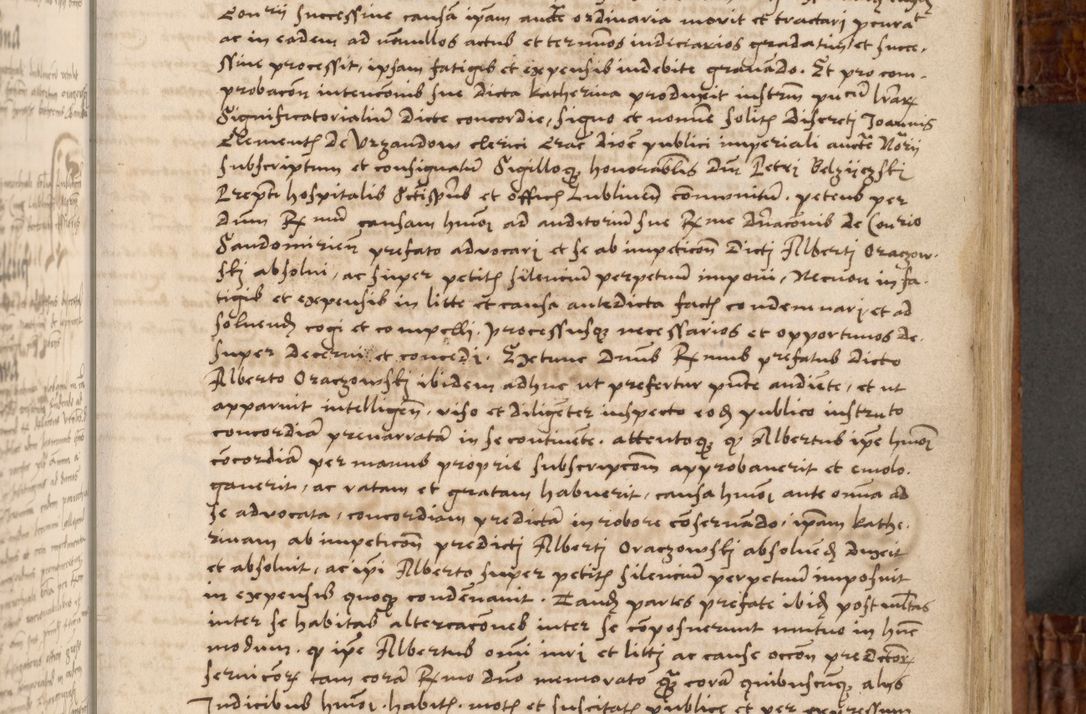 Conrii successive causam ipam aucte ordinaria movit et tractari pcurat
ac in eadem ad nonnullos actus et terminos iudiciarios gradatim et succe.
ssive processit, ipsam fatigis et expensis indebite gravando. Et pro com-
probacon intencionis sue dicta Katherina produxit instrm pucu lrar
Significatorialiu dicte concordie, signo et nomine solitis Discreti Joannis
Clementis de Vrzandow clerici Crac dioc publici imperiali aucte Norii
subscriptum et consignatu Sigilloq honorablis Dni Petri Belzijczskij
Prepti hospitalis Sctispus et offich Lublinen communitu, petens per
Dnm Rmu causam hmoi ad auditoriu sue Rme Dnacionis de Conrio
Sandomirien prefato advocari et se ab impeticon dicti Alberti Oraczow-
skj absolvi, ac super petitis silenciu perpetuu imponi, Necnon in fa-
tigis et expensis in litte et causa antedicta factis condemnari et ad
solvend cogi et compelli, processusq necessarios et opportunos de-
super decerni et concedi. Extunc Dnus Rmus prefatus dicto
Alberto Oraczowskj ibidem adhuc ut prefertur pnte audiete, et ut
apparuit intelligen, viso et diligeter inspecto eod publico instruto
concordia prenarrata in se continente. attentoq q Albertus ipe hmoi
cocordia per manus proprie subscripcom approbaverit et emolo.
gaverit, ac ratam et gratam habuerit, causa hmoi ante omia ad
se advocata, concordiam predicta in robore coservando, ipam Kathe.
rinam ab impeticon predicti Alberti Oraczowskj absolved duxit
et absolvit, ac ipi Alberto super petitis silenciu perpetuu imposuit
in expensis quoq condenavit. Tand partes prefate ibid post multas
inter se habitas altercacones inter se coposuerunt mutuo in huc
modum. q ipe Albertus omi iuri et litti ac cause occon predictor
servicor tam cora Rmo dno memorato q cora quibuscuq alys
Iudicibus hmoi habitis motis et suscitatis publice et per expressum